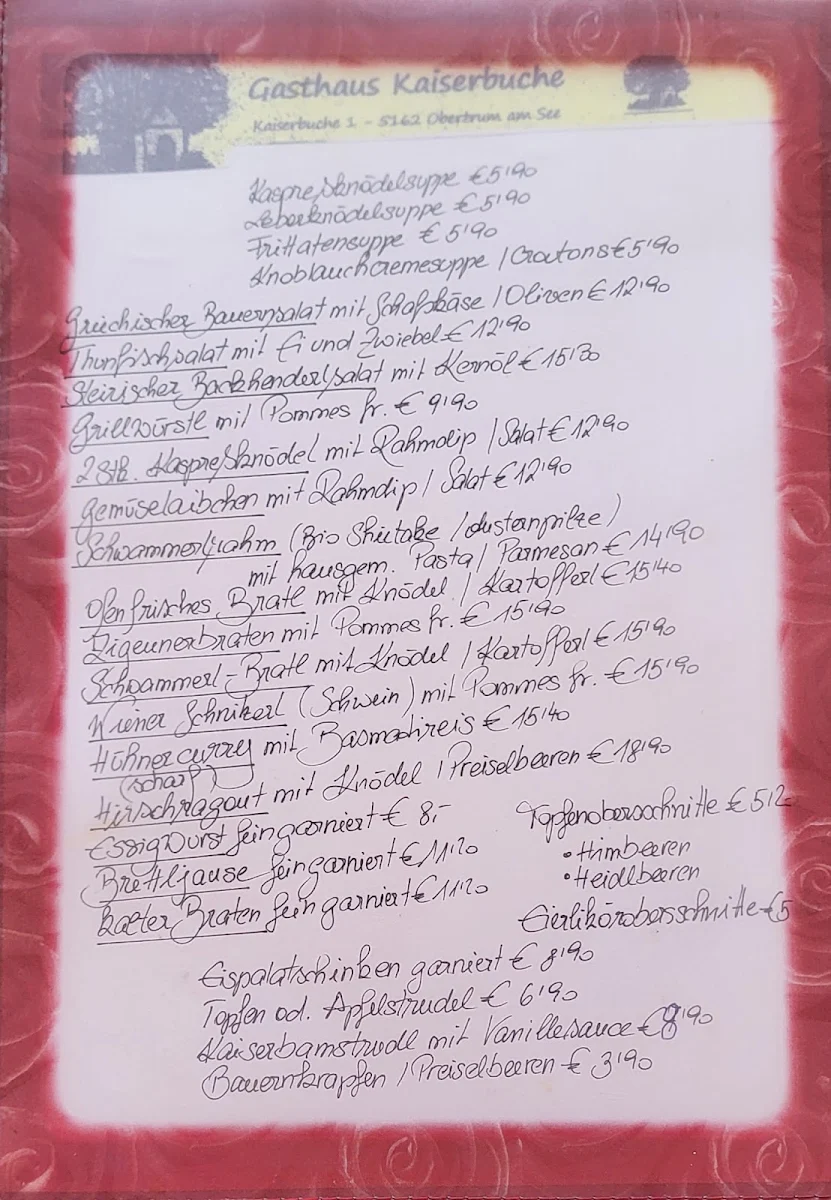 Gasthaus Kaiserbuche
Kaiserbuche 1 - 5162 Obertrum am See
Kaspreßknödelsuppe €5'90
Leberknödelsuppe €5'90
Frittatensuppe €5'90
Knoblauchcremesuppe / Croutons €5'90
Griechischer Bauernsalat mit Schafskäse / Oliven €12'90
Thunfischsalat mit Ei und Zwiebel €12'90
Steirischer Backhenderlsalat mit Kernöl €15'30
Grillwürstl mit Pommes fr. €9'90
2 Stk. Kaspreßknödel mit Rahmdip / Salat €12'90
Gemüselaibchen mit Rahmdip / Salat €12'90
Schwammerlrahm (Bio Shiitake / Austernpilze)
mit hausgem. Pasta / Parmesan €14'90
Ofenfrisches Bratl mit Knödel / Kartofferl €15'40
Zigeunerbraten mit Pommes fr. €15'90
Schwammerl-Bratl mit Knödel / Kartofferl €15'90
Wiener Schnitzerl (Schwein) mit Pommes fr. €15'90
Hühnercurry mit Basmatireis €15'40
(scharf)
Hirschragout mit Knödel / Preiselbeeren €18'90
Essigwurst fein garniert €8,-
Brettljause fein garniert €11'20
Kalter Braten fein garniert €11'20
Topfenobersschnitte €5'2
• Himbeeren
• Heidlbeeren
Eierlikörobersschnitte €5
Eispalatschinken garniert €8'90
Topfen od. Apfelstrudel €6'90
Kaiserbamstrudl mit Vanillesauce €8'90
Bauernkrapfen / Preiselbeeren €3'90